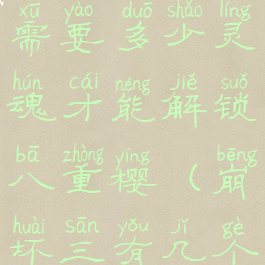 xū yào duō shǎo líng
需要多少灵
hún cái néng jiě suǒ
魂才能解锁
bā zhòng yīng bēng
八重樱（崩
huài sān yǒu jǐ gè
坏三有几个